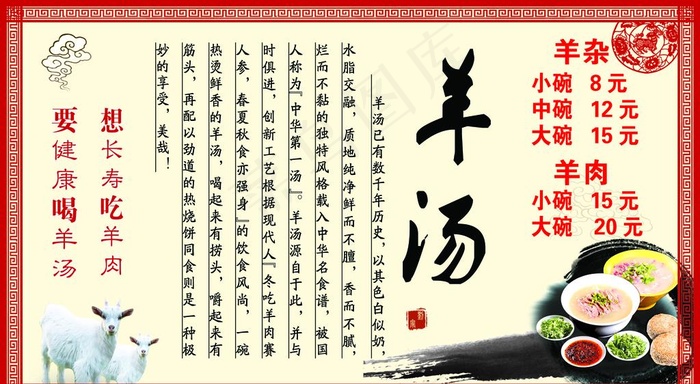 羊杂
小碗 8 元
中碗 12 元
大碗 15 元
羊肉
小碗 15 元
大碗 20 元
羊汤
羊汤已有数千年历史，以其色白似奶，
水脂交融，质地纯净鲜而不膻，香而不腻，
烂而不黏的独特风格载入中华名食谱，被国
人称为『中华第一汤』。羊汤源自于此，并与
时俱进，创新工艺根据现代人『冬吃羊肉赛
人参，春夏秋食亦强身』的饮食风尚，一碗
热烫鲜香的羊汤，喝起来有捞头，嚼起来有
筋头，再配以劲道的热烧饼同食则是一种极
妙的享受，美哉！
想长寿吃羊肉
要健康喝羊汤